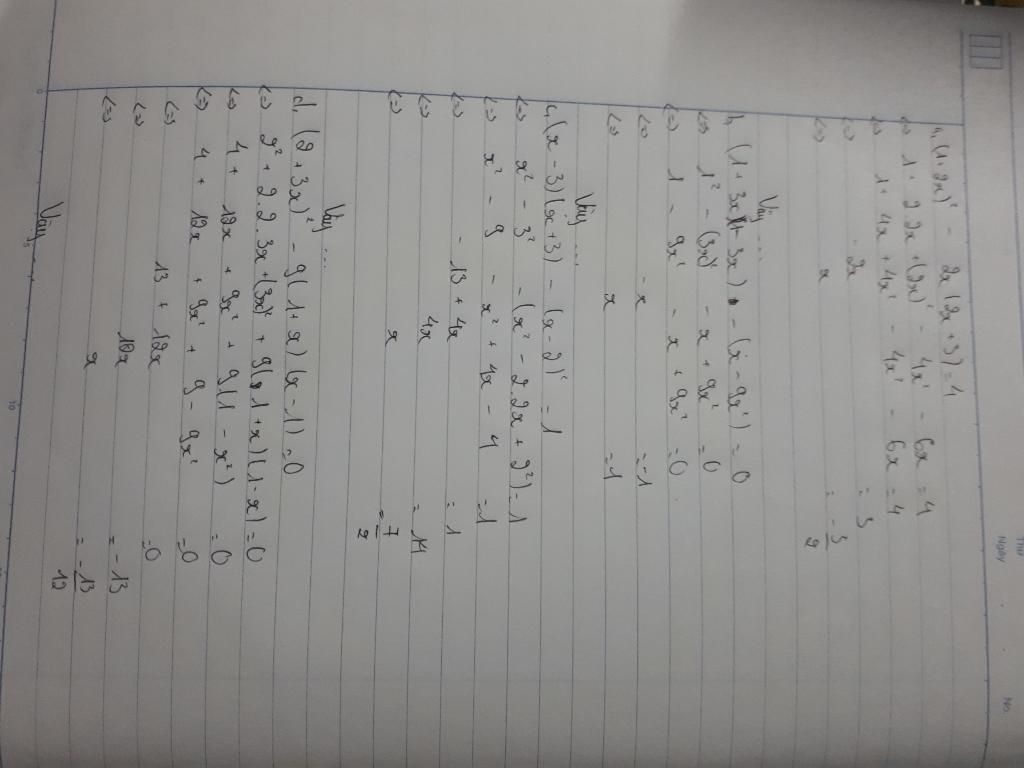 Thứ
Ngày No.
a, (1+2x)² - 2x(2x+3) = 4
<=> 1 + 2.2x + (2x)² - 4x² - 6x = 4
<=> 1 + 4x + 4x² - 4x² - 6x = 4
<=> -2x = 3
<=> x = -3/2
Vậy ...
b, (1+3x)(1-3x) - (x-9x²) = 0
<=> 1² - (3x)² - x + 9x² = 0
<=> 1 - 9x² - x + 9x² = 0
<=> -x = -1
<=> x = 1
Vậy ...
c, (x-3)(x+3) - (x-2)² = 1
<=> x² - 3² - (x² - 2.2x + 2²) = 1
<=> x² - 9 - x² + 4x - 4 = 1
<=> -13 + 4x = 1
<=> 4x = 14
<=> x = 7/2
Vậy ...
d, (2+3x)² - 9(1+x)(x-1) = 0
<=> 2² + 2.2.3x + (3x)² + 9(1+x)(1-x) = 0
<=> 4 + 12x + 9x² + 9(1-x²) = 0
<=> 4 + 12x + 9x² + 9 - 9x² = 0
<=> 13 + 12x = 0
<=> 12x = -13
<=> x = -13/12
Vậy ...
0 5 10